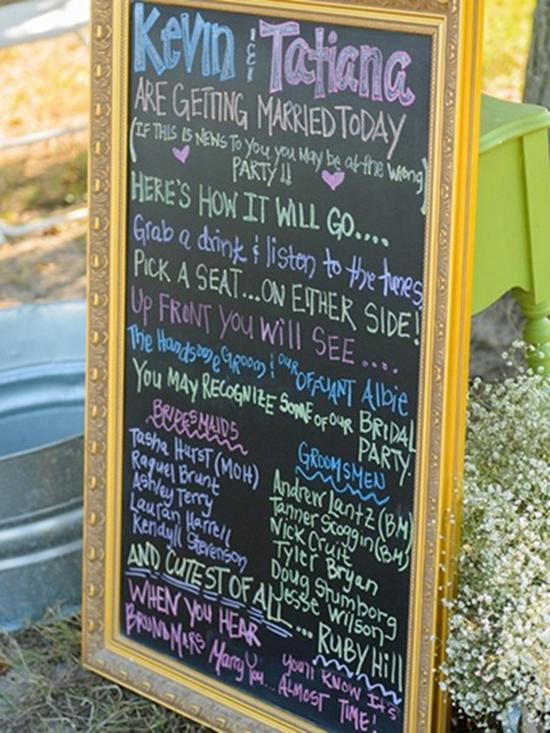 Kevin & Tatiana
ARE GETTING MARRIED TODAY
(IF THIS IS NEWS TO YOU, YOU MAY be at the wrong
PARTY!!)
HERE'S HOW IT WILL GO....
Grab a drink & listen to the tunes
PICK A SEAT...ON EITHER SIDE!
UP FRONT YOU WILL SEE....
The Handsome GROOM & OUR OFFICIANT Albie
YOU MAY RECOGNIZE SOME of OUR BRIDAL
PARTY.
BRIDESMAIDS
Tasha Hurst (MOH)
Raquel Brunt
Ashley Terry
Lauran Harrell
Kendyll Stevenson
GROOMSMEN
Andrew Lantz (BM)
Tanner Scoggin (BM)
Nick Cruit
Tyler Bryan
Doug Stumborg
Jesse Wilson
AND CUTEST OF ALL... RUBY HILL
WHEN YOU HEAR
BRUNO MARS Marry You... YOU'll KNOW It's
ALMOST TIME!